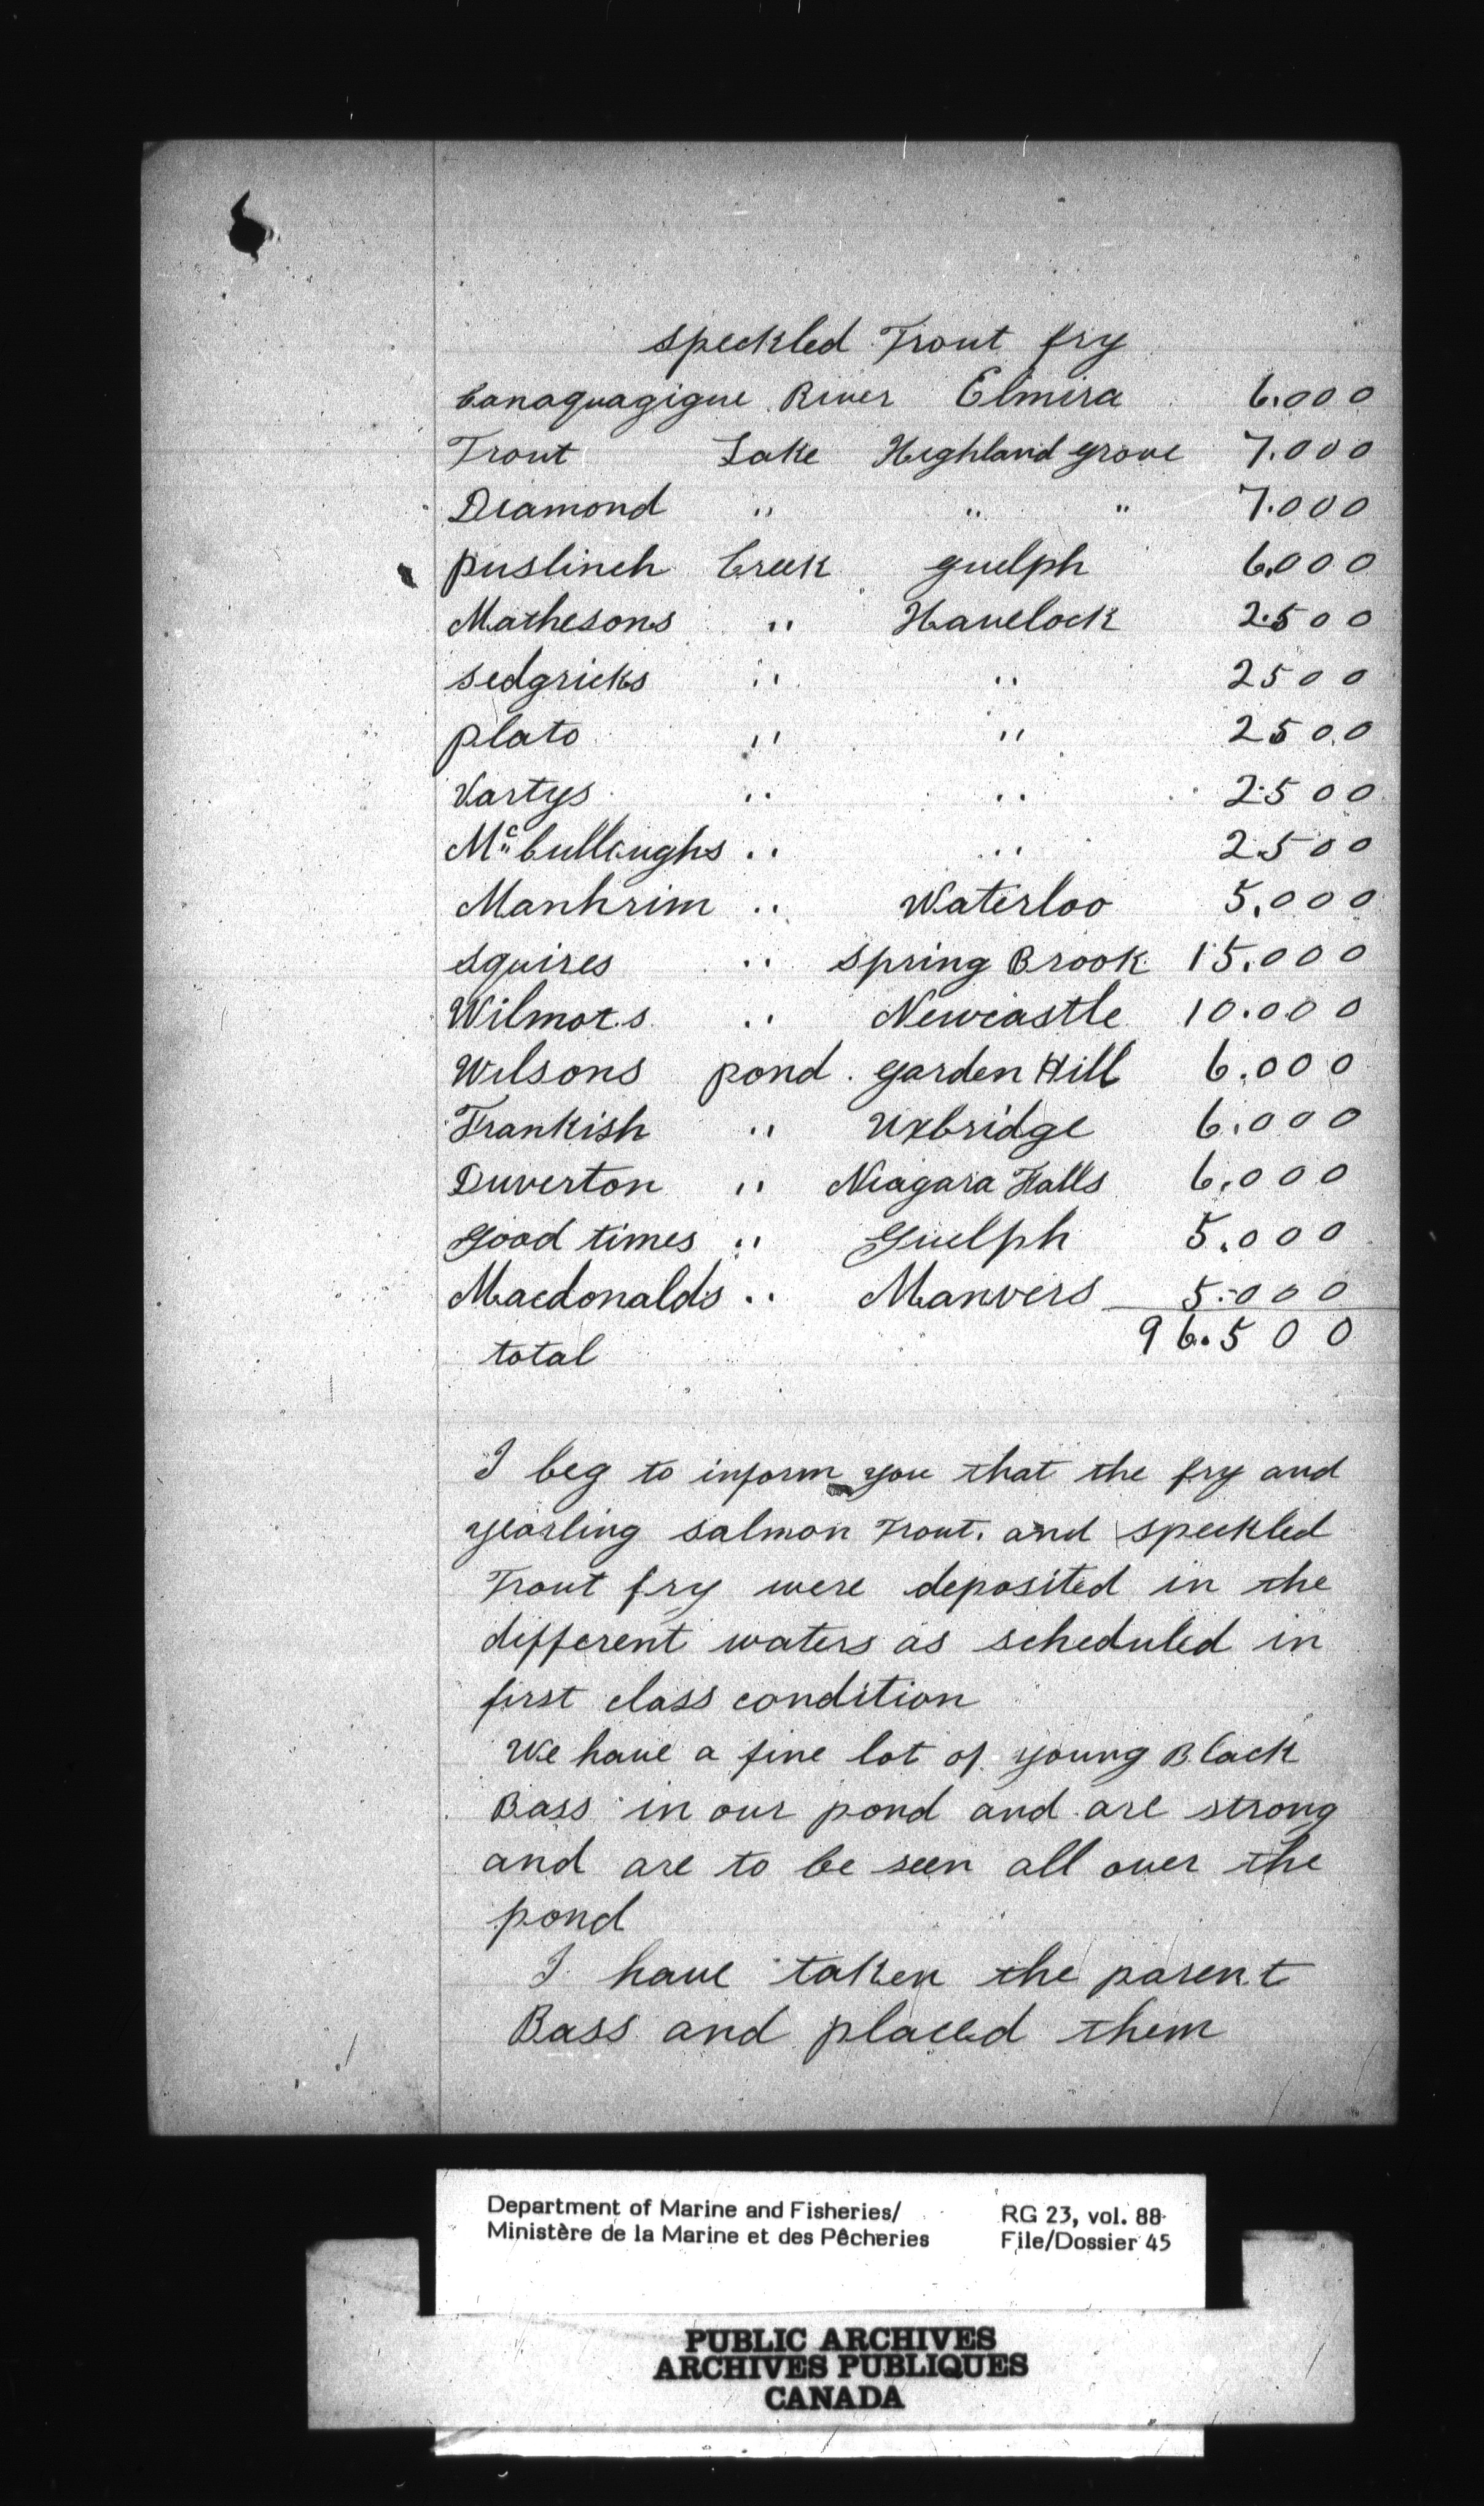 speckled Trout fry
Canaquagigue River Elmira 6.000
Trout Lake Highland grove 7.000
Diamond " " " 7.000
puslinch Creek guelph 6.000
Mathesons " Havelock 2.500
sedgricks " " 2500
plato " " 2500
Vartys " " 2.500
Mc Cullaughs " " 2.500
Manhrim " Waterloo 5.000
squires " spring Brook 15.000
Wilmots " Newcastle 10.000
Wilsons pond garden Hill 6.000
Frankish " Uxbridge 6.000
Duverton " Niagara Falls 6.000
good times " Guelph 5.000
Macdonalds " Manvers 5.000
total 96.500
I beg to inform you that the fry and
yearling salmon Trout. and speckled
Trout fry were deposited in the
different waters as scheduled in
first class condition
We have a fine lot of young Black
Bass in our pond and are strong
and are to be seen all over the
pond
I have taken the parent
Bass and placed them
Department of Marine and Fisheries/ RG 23, vol. 88
Ministère de la Marine et des Pêcheries File/Dossier 45
PUBLIC ARCHIVES
ARCHIVES PUBLIQUES
CANADA